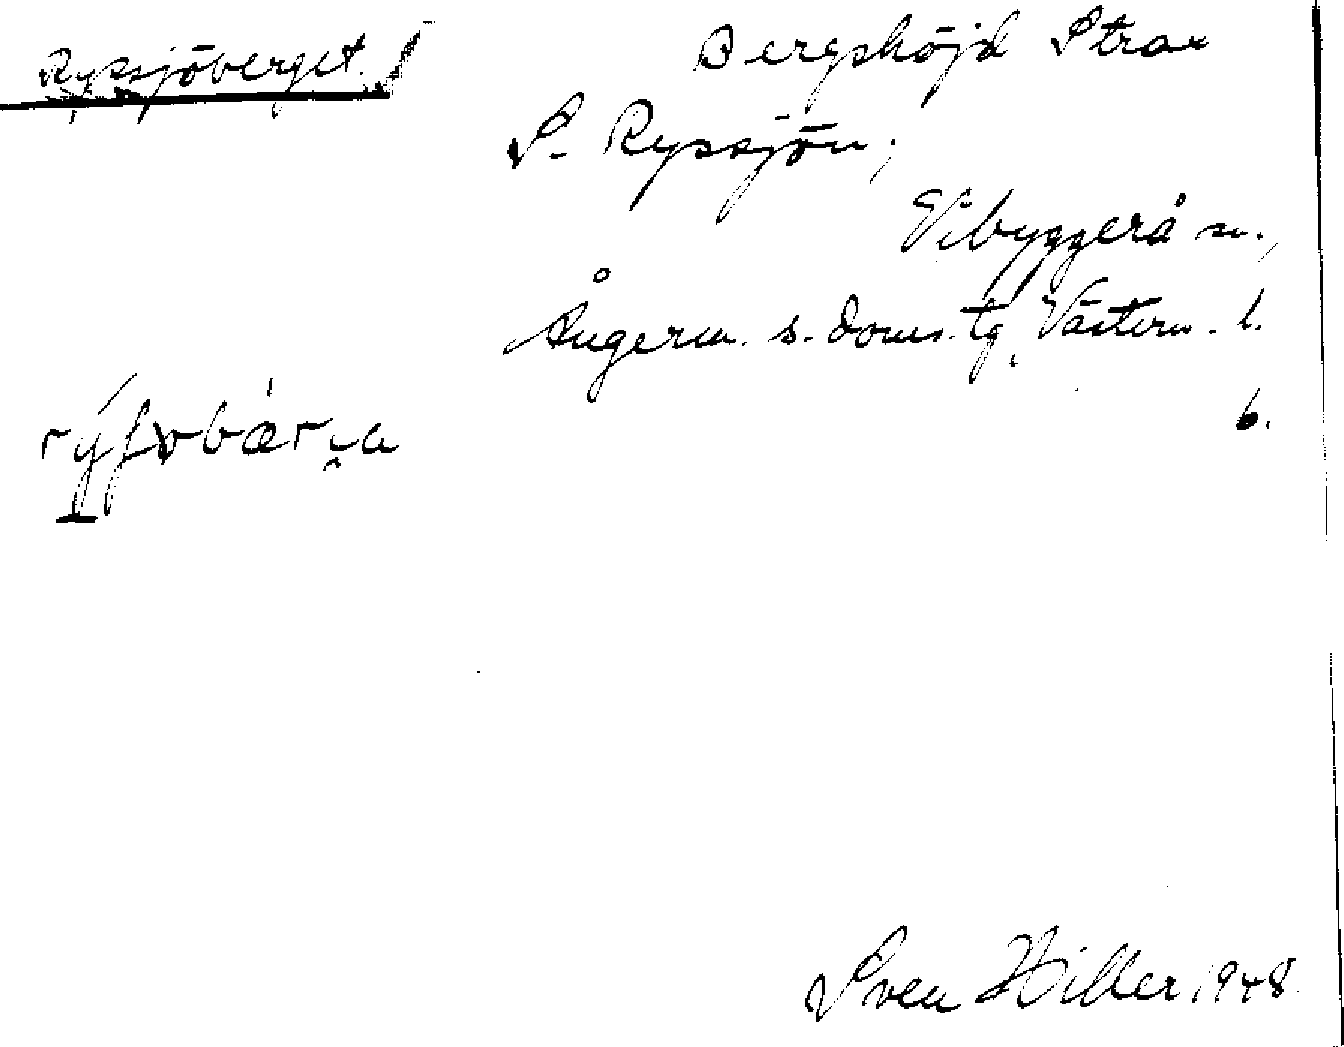 Ryssjöberget.
Bergshöjd strax
S. Ryssjön;
Vibyggerå sn.,
Ångerm. s. doms. tg, Västern. l.
b.
Sven Hiller 1948